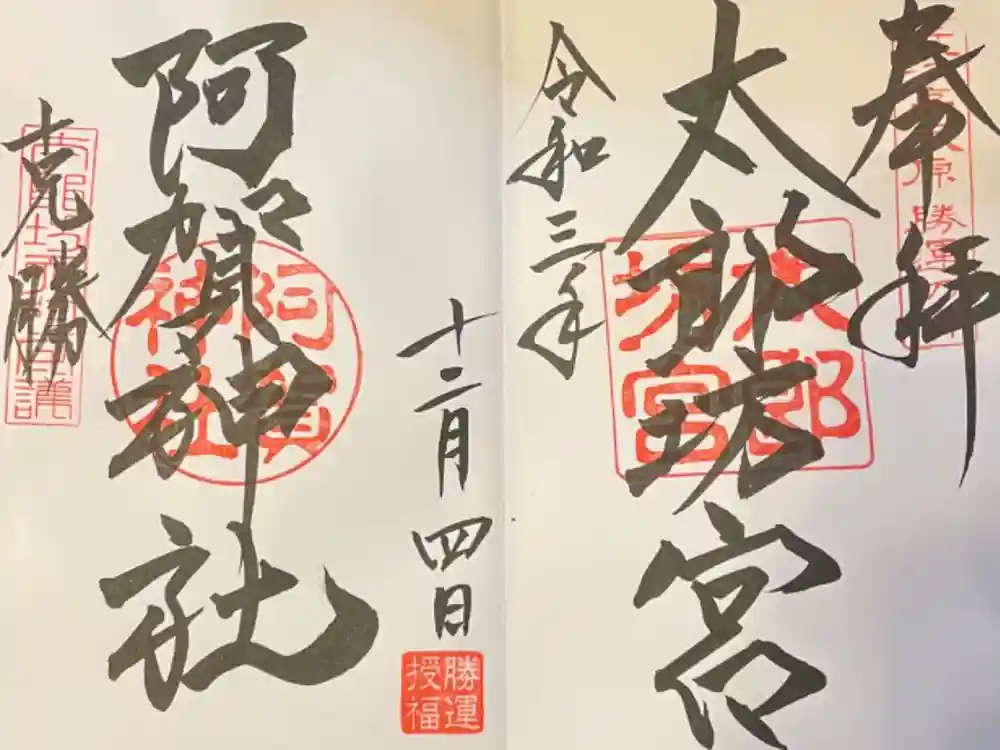 奉拝
太郎坊宮
令和三年
十二月四日
阿賀神社
克勝
太郎坊宮
阿賀神社
勝運授福